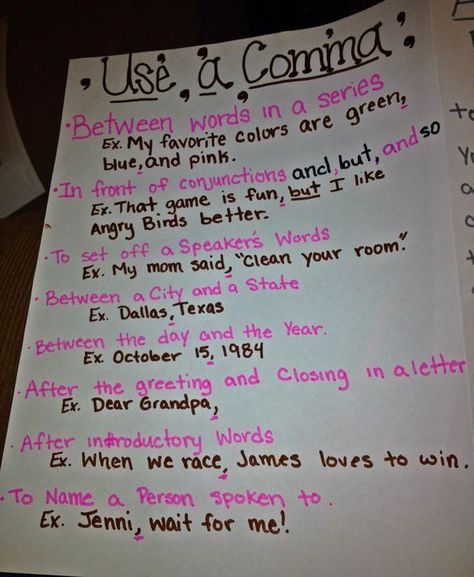 , Use, a, Comma,
• Between words in a series
Ex. My favorite colors are green,
blue, and pink.
• In front of conjunctions and, but, and so
Ex. That game is fun, but I like
Angry Birds better.
• To set off a Speaker's Words
Ex. My mom said, "Clean your room."
• Between a City and a State
Ex. Dallas, Texas
• Between the day and the Year.
Ex. October 15, 1984
• After the greeting and Closing in a letter
Ex. Dear Grandpa,
• After introductory Words
Ex. When we race, James loves to win.
• To Name a Person spoken to.
Ex. Jenni, wait for me!